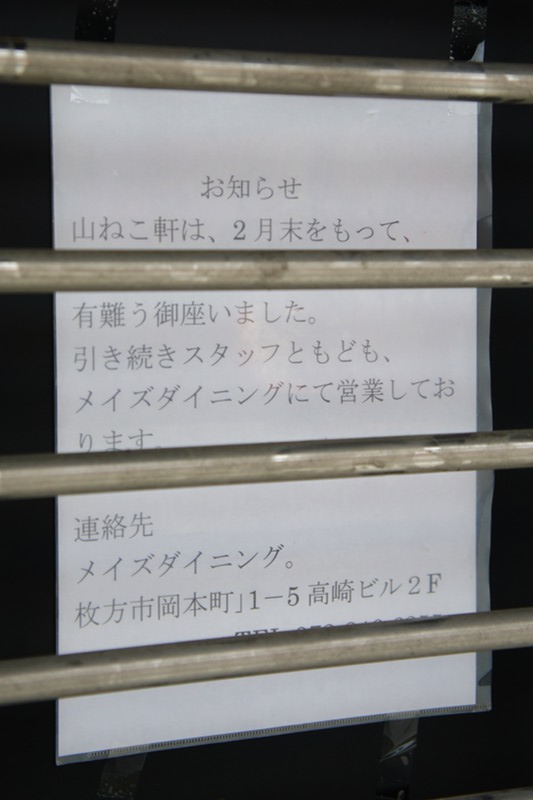 お知らせ
山ねこ軒は、2月末をもって、
有難う御座いました。
引き続きスタッフともども、
メイズダイニングにて営業してお
ります。
連絡先
メイズダイニング。
枚方市岡本町」1−5高崎ビル2F
TEL